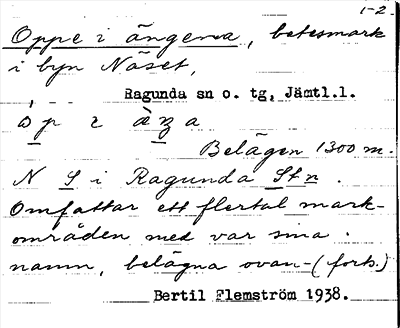 1-2.
Oppe i ängena, betesmark
i byn Näset,
Ragunda sn o. tg, Jämtl.l.
Belägen 1300 m.
N S i Ragunda St:n.
Omfattar ett flertal mark-
områden med var sina
namn, belägna ovan-(forts.)
Bertil Flemström 1938.